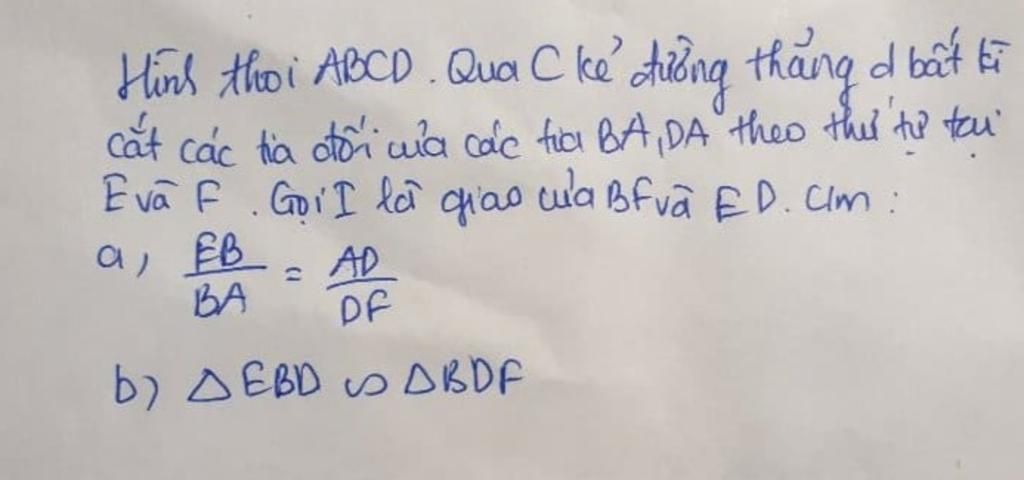 Hình thoi ABCD. Qua C kẻ đường thẳng d bất kì
cắt các tia đối của các tia BA, DA theo thứ tự tại
E và F. Gọi I là giao của BF và ED. C/m:
a, EB/BA = AD/DF
b) △EBD ∽ △BDF